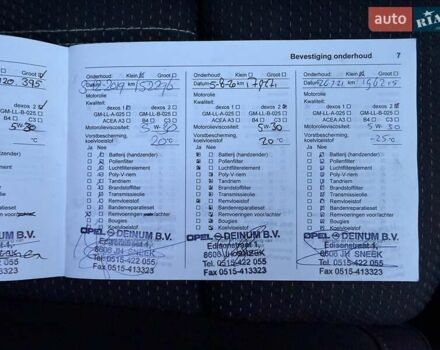 auto RIA
Bevestiging onderhoud 7
Groot
395
dexos 2
GM-LL-B-025
B4 C3
5W-30
20°C
Onderhoud: Klein Groot
Datum 3-12-2019 km
Motorolie
Kwaliteit:
dexos 1 dexos 2
GM-LL-A-025 GM-LL-B-025
ACEA A3 B4 C3
Motorolieviscositeit: 5 W 30
Vorstbescherming,
koelvloeistof 20°C
Ja Nee
Batterij (handzender)
Pollenfilter
Luchtfilterelement
Poly-V-riem
Tandriem
Brandstoffilter
Transmissieolie
Remvloeistof
Bandenreparatieset
Remvoeringen voor/achter
Bougies
Koelvloeistof
OPEL DEINUM B.V.
Edisonstraat 1,
8606 JH SNEEK
Tel. 0515-422 055
Fax 0515-413323
Onderhoud: Klein Groot
Datum km
Motorolie
Kwaliteit:
dexos 1 dexos 2
GM-LL-A-025 GM-LL-B-025
ACEA A3 B4 C3
Motorolieviscositeit: 5W-30
Vorstbescherming,
koelvloeistof 20°C
Ja Nee
Batterij (handzender)
Pollenfilter
Luchtfilterelement
Poly-V-riem
Tandriem
Brandstoffilter
Transmissieolie
Remvloeistof
Bandenreparatieset
Remvoeringen voor/achter
Bougies
Koelvloeistof
OPEL DEINUM B.V.
Edisonstraat 1,
8606 JH SNEEK
Tel. 0515-422 055
Fax 0515-413323
Onderhoud: Klein Groot
Datum km
Motorolie
Kwaliteit:
dexos 1 dexos 2
GM-LL-A-025 GM-LL-B-025
ACEA A3 B4 C3
Motorolieviscositeit: 5W-30
Vorstbescherming,
koelvloeistof -25°C
Ja Nee
Batterij (handzender)
Pollenfilter
Luchtfilterelement
Poly-V-riem
Tandriem
Brandstoffilter
Transmissieolie
Remvloeistof
Bandenreparatieset
Remvoeringen voor/achter
Bougies
Koelvloeistof
OPEL DEINUM B.V.
Edisonstraat 1,
8606 JH SNEEK
Tel. 0515-422 055
Fax 0515-413323